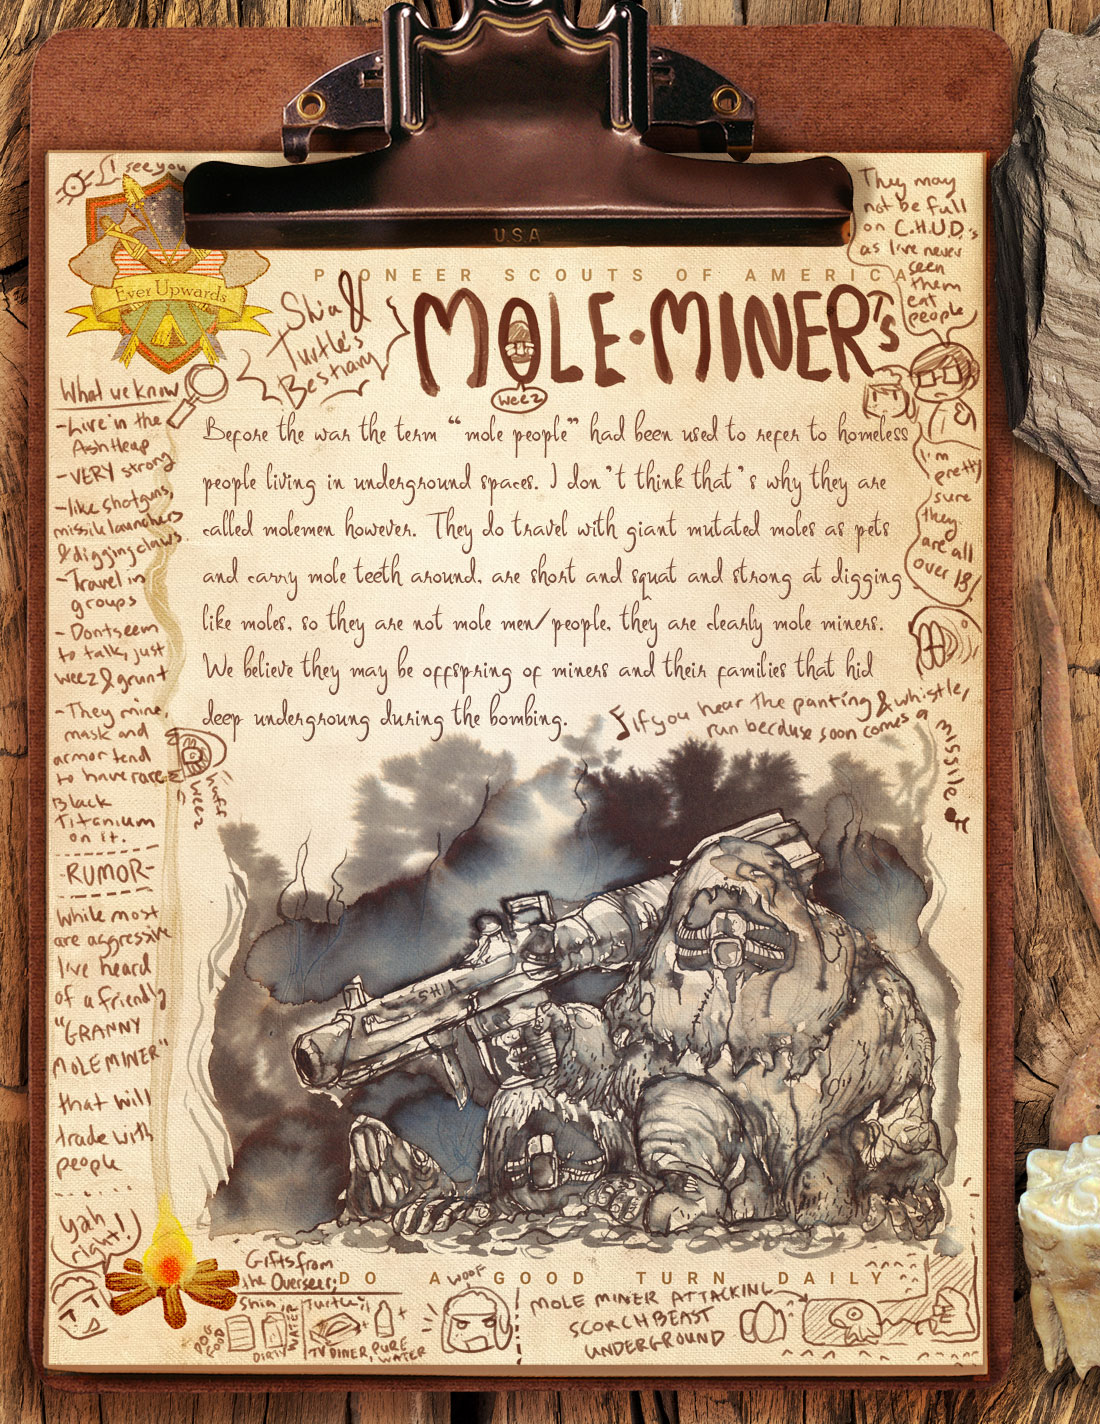 I see you
USA
They may
not be full
on C.H.U.D.'s
as I've never
seen
them
eat
people
PIONEER SCOUTS OF AMERICA
Ever Upwards
Shia &
Turtle's
Bestiary
MOLE·MINER'S
weez
What we know
-Live in the
Ash Heap
-VERY strong
-like shotguns,
missile launchers
& digging claws.
-Travel in
groups
-Dont seem
to talk, just
weez & grunt
-They mine,
mask and
armor tend
to have rare
Black
Titanium
on it.
-RUMOR-
While most
are aggressive
I've heard
of a friendly
"GRANNY
MOLE MINER"
that will
trade with
people
yah
right!
Before the war the term “mole people” had been used to refer to homeless
people living in underground spaces. I don't think that's why they are
called molemen however. They do travel with giant mutated moles as pets
and carry mole teeth around, are short and squat and strong at digging
like moles, so they are not mole men/people, they are clearly mole miners.
We believe they may be offspring of miners and their families that hid
deep undergroung during the bombing.
I'm
pretty
sure
they
are all
over 18!
if you hear the panting & whistle,
run because soon comes a missile
huff
weez
SHIA
Gifts from
the Overseer:
DO A GOOD TURN DAILY
Shia
DOG
FOOD
DIRTY WATER
Turtle
TV DINER, PURE
WATER
WOOF
MOLE MINER ATTACKING
SCORCHBEAST
UNDERGROUND